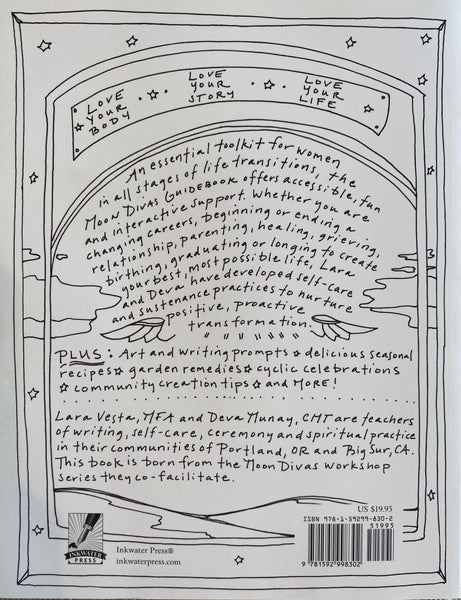 LOVE YOUR BODY
LOVE YOUR STORY
LOVE YOUR LIFE
An essential toolkit for women
in all stages of life transitions, the
MOON DIVAS GUIDEBOOK offers accessible, fun
and interactive support. Whether you are
changing careers, beginning or ending a
relationship, parenting, healing, grieving,
birthing, graduating or longing to create
your best, most possible life, Lara
and Deva have developed self-care
and sustenance practices to nurture
positive, proactive
transformation.
PLUS: Art and writing prompts ☆ delicious seasonal
recipes ☆ garden remedies ☆ cyclic celebrations
☆ community creation tips ☆ and MORE!
Lara Vesta, MFA and Deva Munay, CMT are teachers
of writing, self-care, ceremony and spiritual practice
in their communities of Portland, OR and Big Sur, CA.
This book is born from the Moon Divas Workshop
Series they co-facilitate.
US $19.95
ISBN 978-1-59299-830-2
51995
INKWATER
PRESS
Inkwater Press®
inkwaterpress.com
9 781592 998302